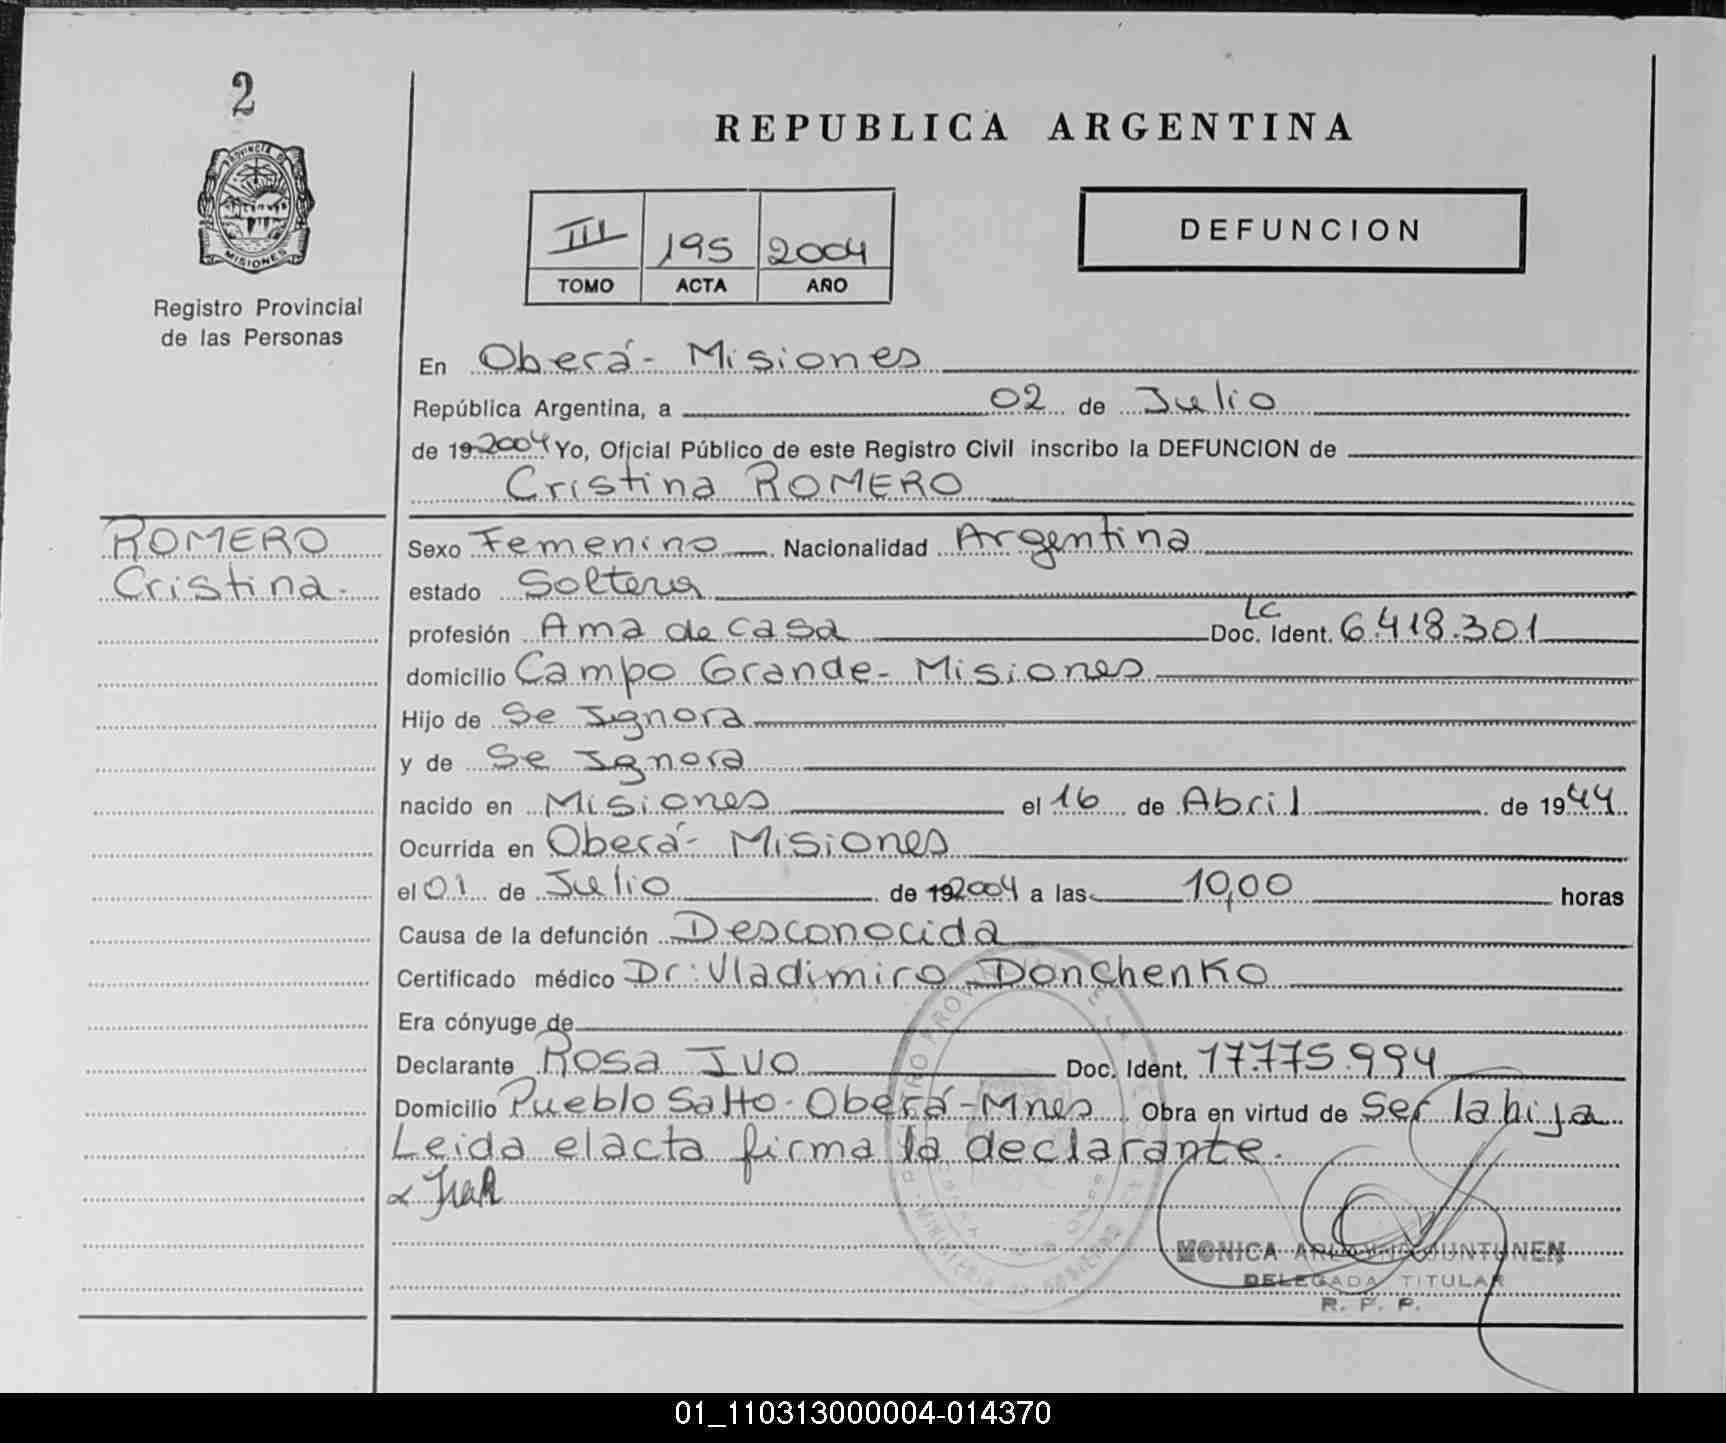 2
PROVINCIA DE
MISIONES
Registro Provincial
de las Personas
REPUBLICA ARGENTINA
III 195 2004
TOMO ACTA AÑO
DEFUNCION
En Oberá - Misiones
República Argentina, a 02 de Julio
de 19 2004 Yo, Oficial Público de este Registro Civil inscribo la DEFUNCION de
Cristina ROMERO
ROMERO
Cristina.
Sexo Femenino Nacionalidad Argentina
estado Soltera
profesión Ama de casa Doc. Ident. LC 6.418.301
domicilio Campo Grande - Misiones
Hijo de Se Ignora
y de Se Ignora
nacido en Misiones el 16 de Abril de 1944
Ocurrida en Oberá - Misiones
el 01 de Julio de 19 2004 a las 10,00 horas
Causa de la defunción Desconocida
Certificado médico Dr: Vladimiro Donchenko
Era cónyuge de
Declarante Rosa Ivo Doc. Ident. 17.775.994
Domicilio Pueblo Salto - Oberá - Mnes Obra en virtud de Ser la hija
Leida el acta firma la declarante.
MONICA JUNTUNEN
DELEGADA TITULAR
R. P. P.
01_110313000004-014370